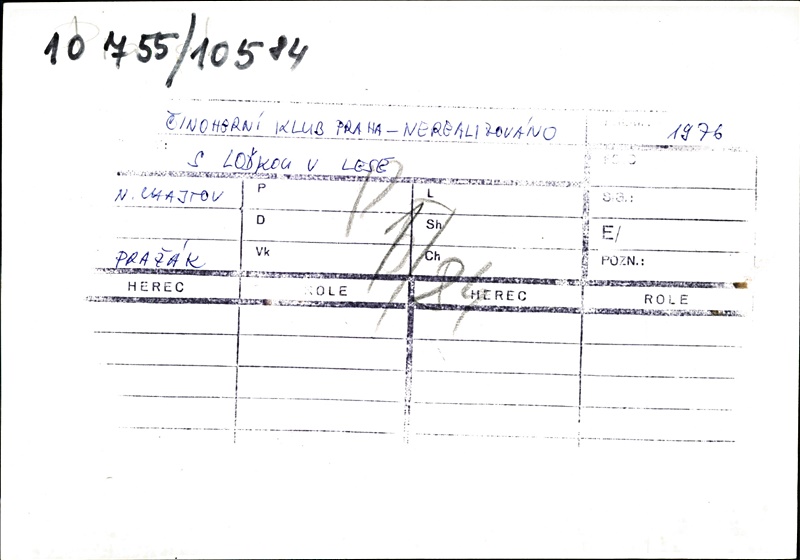 10 755/10584
ČINOHERNÍ KLUB PRAHA - NEREALIZOVÁNO 1976
S LOŽKOU V LESE
N. CHAJTOV P L SIG.:
D Sh E/
PRAŽÁK Vk Ch POZN.:
P 11/84
HEREC ROLE HEREC ROLE